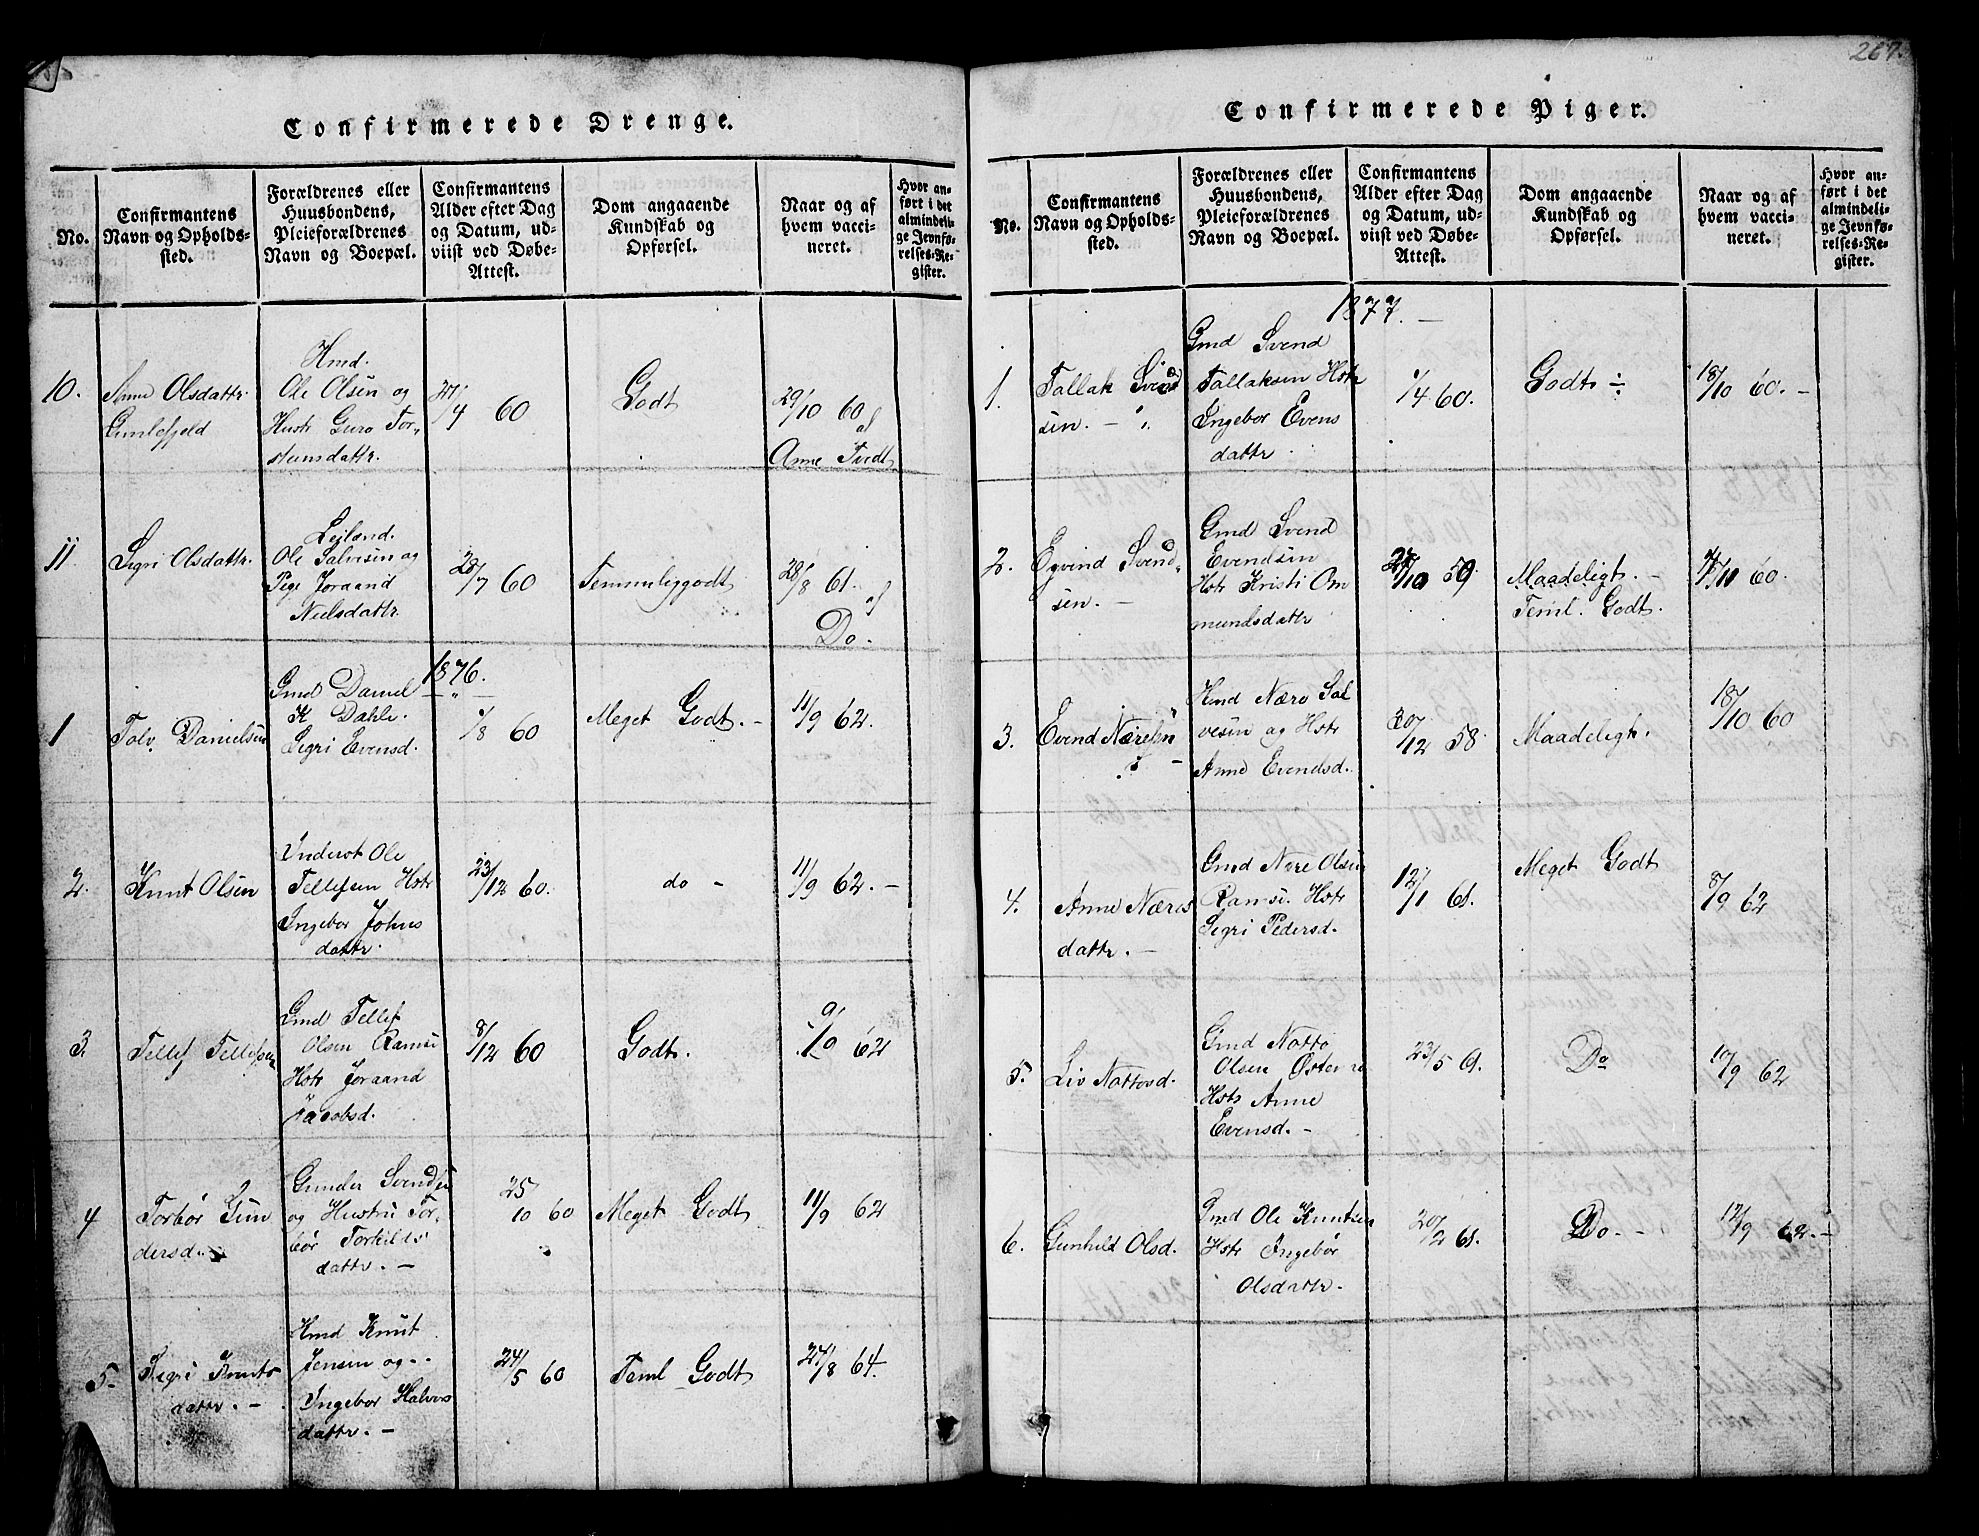 267.
Confirmerede Drenge.
No.
Confirmantens
Navn og Opholds-
sted.
Forældrenes eller
Huusbondens,
Pleieforældrenes
Navn og Boepæl.
Confirmantens
Alder efter Dag
og Datum, ud-
viist ved Døbe-
Attest.
Dom angaaende
Kundskab og
Opførsel.
Naar og af
hvem vacci-
neret.
Hvor an-
ført i det
almindeli-
ge Jevnfø-
relses-Re-
gister.
10.
Anne Olsdattr.
Gunlefjeld
Hmd.
Ole Olsen og
Hustr Guro Tor-
steinsdattr.
27/4 60
Godt
29/10 60
af
Anne Tvedt
11.
Sigri Olsdattr.
Leilænd.
Ole Salvesen og
Pige Joraand
Nielsdattr.
28/7 60
Temmeliggodt
28/8 61.
af
Do.
1876.
1
Talv. Danielsen
Gmd Daniel
K Dahle.
Sigri Evensd.
1/8 60
Meget Godt. -
11/9 62.
2.
Knut Olsen
Inderst Ole
Tellefsen Hstr
Ingebor Johns
dattr.
23/12 60.
do -
11/9 62. -
3.
Tellef Tellefsen
Gmd Tellef
Olsen Ramse
Hstr Joraand
Jacobsd.
8/12 60
Godt.
9/9 62
4
Torbør Gun
dersd.
Gunder Svendsen
og Hustru Tor-
bør Torkilds
dattr. -
25/10 60
Meget Godt
11/9 62
5-
Sigri Knuts
dattr. -
Hmd Knut
Jensen og
Ingebor Halvors
dattr. -
24/5 60
Teml Godt
24/8 64.
Confirmerede Piger.
No.
Confirmantens
Navn og Opholds-
sted.
Forældrenes eller
Huusbondens,
Pleieforældrenes
Navn og Boepæl.
Confirmantens
Alder efter Dag
og Datum, ud-
viist ved Døbe-
Attest.
Dom angaaende
Kundskab og
Opførsel.
Naar og af
hvem vacci-
neret.
Hvor an-
ført i det
almindeli-
ge Jevnfø-
relses-Re-
gister.
1877. -
1.
Tallak Svend
sen. -
Gmd Svend
Tallaksen Hstr
Ingebor Evens
dattr.
1/4 60.
Godt ÷
18/10 60. -
2.
Eyvind Svend-
sen. -
Gmd Svend
Evendsen
Hstr Kristi Om
mundsdattr
27/10 59.
Maadeligt. -
Teml. Godt.
4/11 60.
3.
Evend Næresen
Hmd Næro Sal
vesen og Hstr
Anne Evendsd.
30/12 58.
Maadeligt.
18/10 60
4.
Anne Næres
dattr. -
Gmd Nere Olsen
Ramse. Hstr
Sigri Pedersd.
12/1 61.
Meget Godt
8/9 62
5.
Liv Nottovd.
Gmd Notto
Olsen
Hstr Anne
Evensd. -
23/5 61.
Do
10/9 62
6.
Gunhild Olsd.
Gmd Ole Knutsen
Hstr Ingebør
Olsdattr.
20/2 61.
Do. -
12/9 62. -